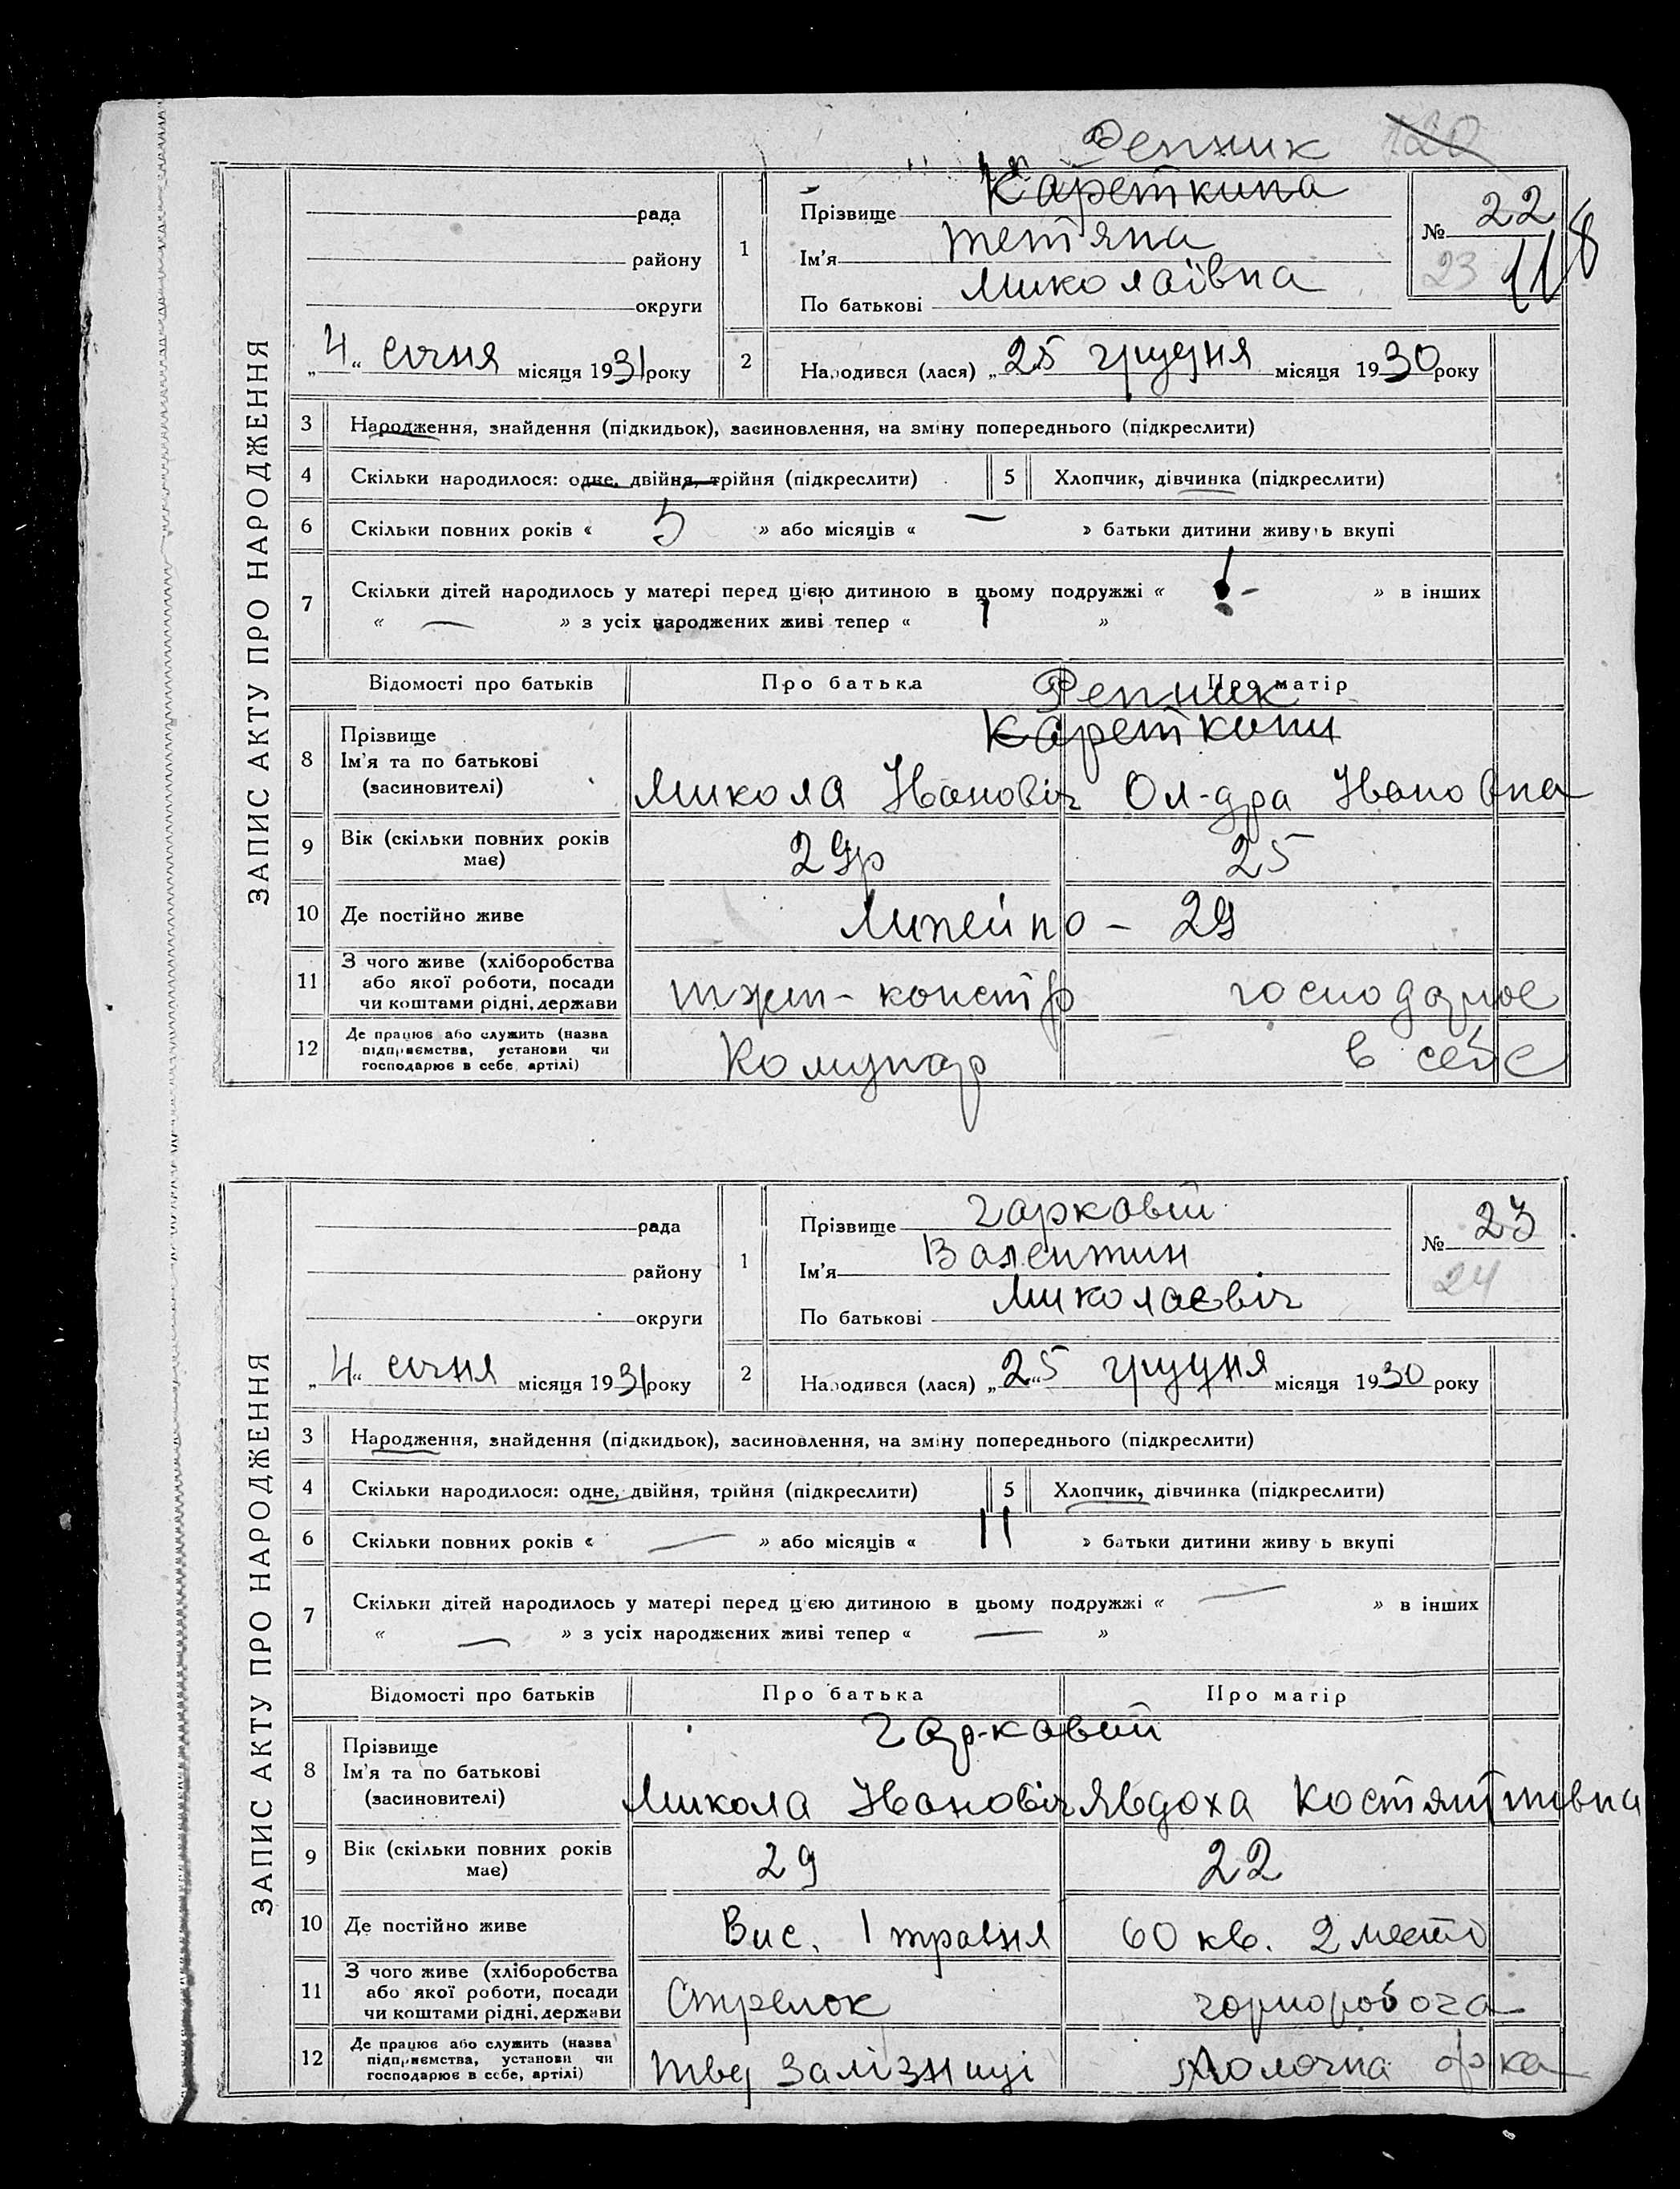 Репник 120
ЗАПИС АКТУ ПРО НАРОДЖЕННЯ
рада
району
округи
„4“ січня місяця 1931 року
1
Прізвище Кареткина
Ім'я Тетяна
По батькові Миколаївна
№ 22
23 118
2 Народився (лася) „25 грудня місяця 1930 року
3 Народження, знайдення (підкидьок), засиновлення, на зміну попереднього (підкреслити)
4 Скільки народилося: одне, двійня, трійня (підкреслити) 5 Хлопчик, дівчинка (підкреслити)
6 Скільки повних років « 5 » або місяців « — » батьки дитини живуть вкупі
7 Скільки дітей народилось у матері перед цією дитиною в цьому подружжі « 1 - » в інших
« — » з усіх народжених живі тепер « 1 »
Відомості про батьків Про батька Про матір
Репник
8 Прізвище Кареткини
Ім'я та по батькові
(засиновителі) Микола Івановіч Ол-дра Івановна
9 Вік (скільки повних років має) 29р 25
10 Де постійно живе Линейно - 29
11 З чого живе (хліборобства
або якої роботи, посади
чи коштами рідні, держави констр господарює
12 Де працює або служить (назва
підприємства, установи чи
господарює в себе, артілі) Комунар в себе
ЗАПИС АКТУ ПРО НАРОДЖЕННЯ
рада
району
округи
„4“ січня місяця 1931 року
1
Прізвище Гарковій
Ім'я Валентин
По батькові Миколаєвіч
№ 23
24
2 Народився (лася) „25 грудня місяця 1930 року
3 Народження, знайдення (підкидьок), засиновлення, на зміну попереднього (підкреслити)
4 Скільки народилося: одне, двійня, трійня (підкреслити) 5 Хлопчик, дівчинка (підкреслити)
6 Скільки повних років « — » або місяців « 11 » батьки дитини живу ь вкупі
7 Скільки дітей народилось у матері перед цією дитиною в цьому подружжі « — » в інших
« — » з усіх народжених живі тепер « — »
Відомості про батьків Про батька Про матір
8 Прізвище Гарковій
Ім'я та по батькові
(засиновителі) Микола Івановіч Явдоха Костянтиновна
9 Вік (скільки повних років має) 29 22
10 Де постійно живе Вис. 1 травня 60 кв. 2 место
11 З чого живе (хліборобства
або якої роботи, посади
чи коштами рідні, держави Стрелок чорноробоча
12 Де працює або служить (назва
підприємства, установи чи
господарює в себе, артілі) Залізниці Молочна ф-ка